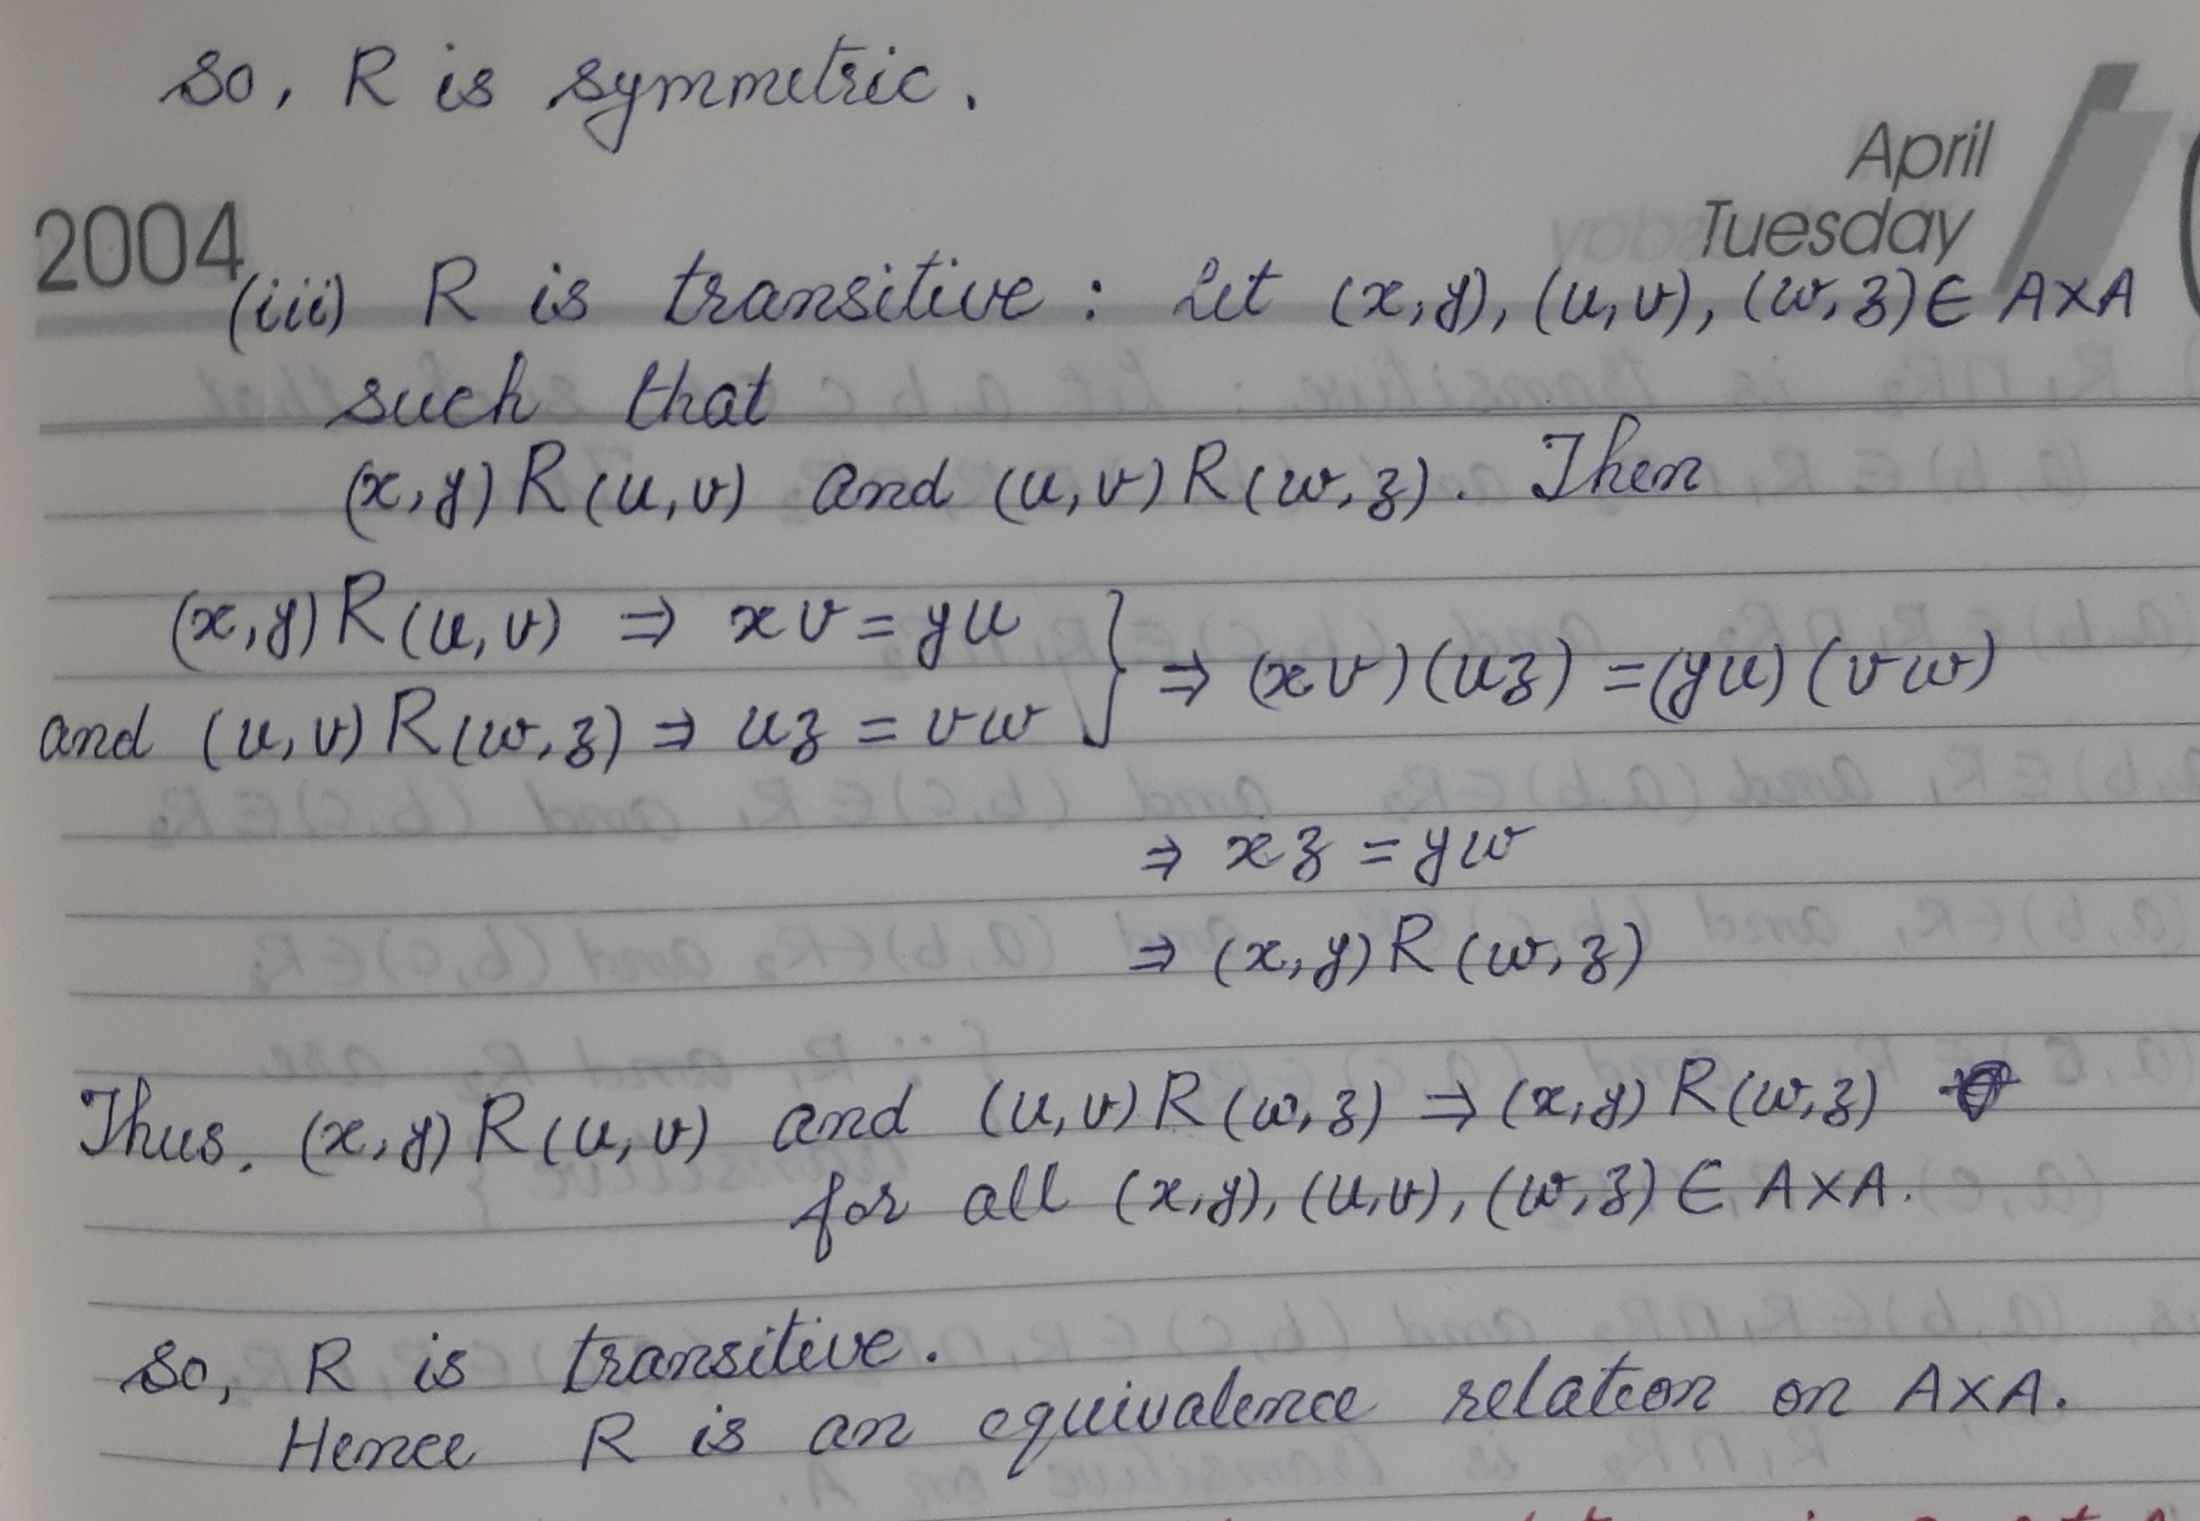 So, R is symmetric.
April
2004 Tuesday
(iii) R is transitive : Let (x,y), (u,v), (w,z) ∈ A×A
such that
(x,y) R (u,v) and (u,v) R (w,z). Then
(x,y) R (u,v) ⇒ xv = yu
and (u,v) R (w,z) ⇒ uz = vw } ⇒ (xv)(uz) = (yu)(vw)
⇒ xz = yw
⇒ (x,y) R (w,z)
Thus. (x,y) R (u,v) and (u,v) R (w,z) ⇒ (x,y) R (w,z)
for all (x,y), (u,v), (w,z) ∈ A×A.
So, R is transitive.
Hence R is an equivalence relation on A×A.